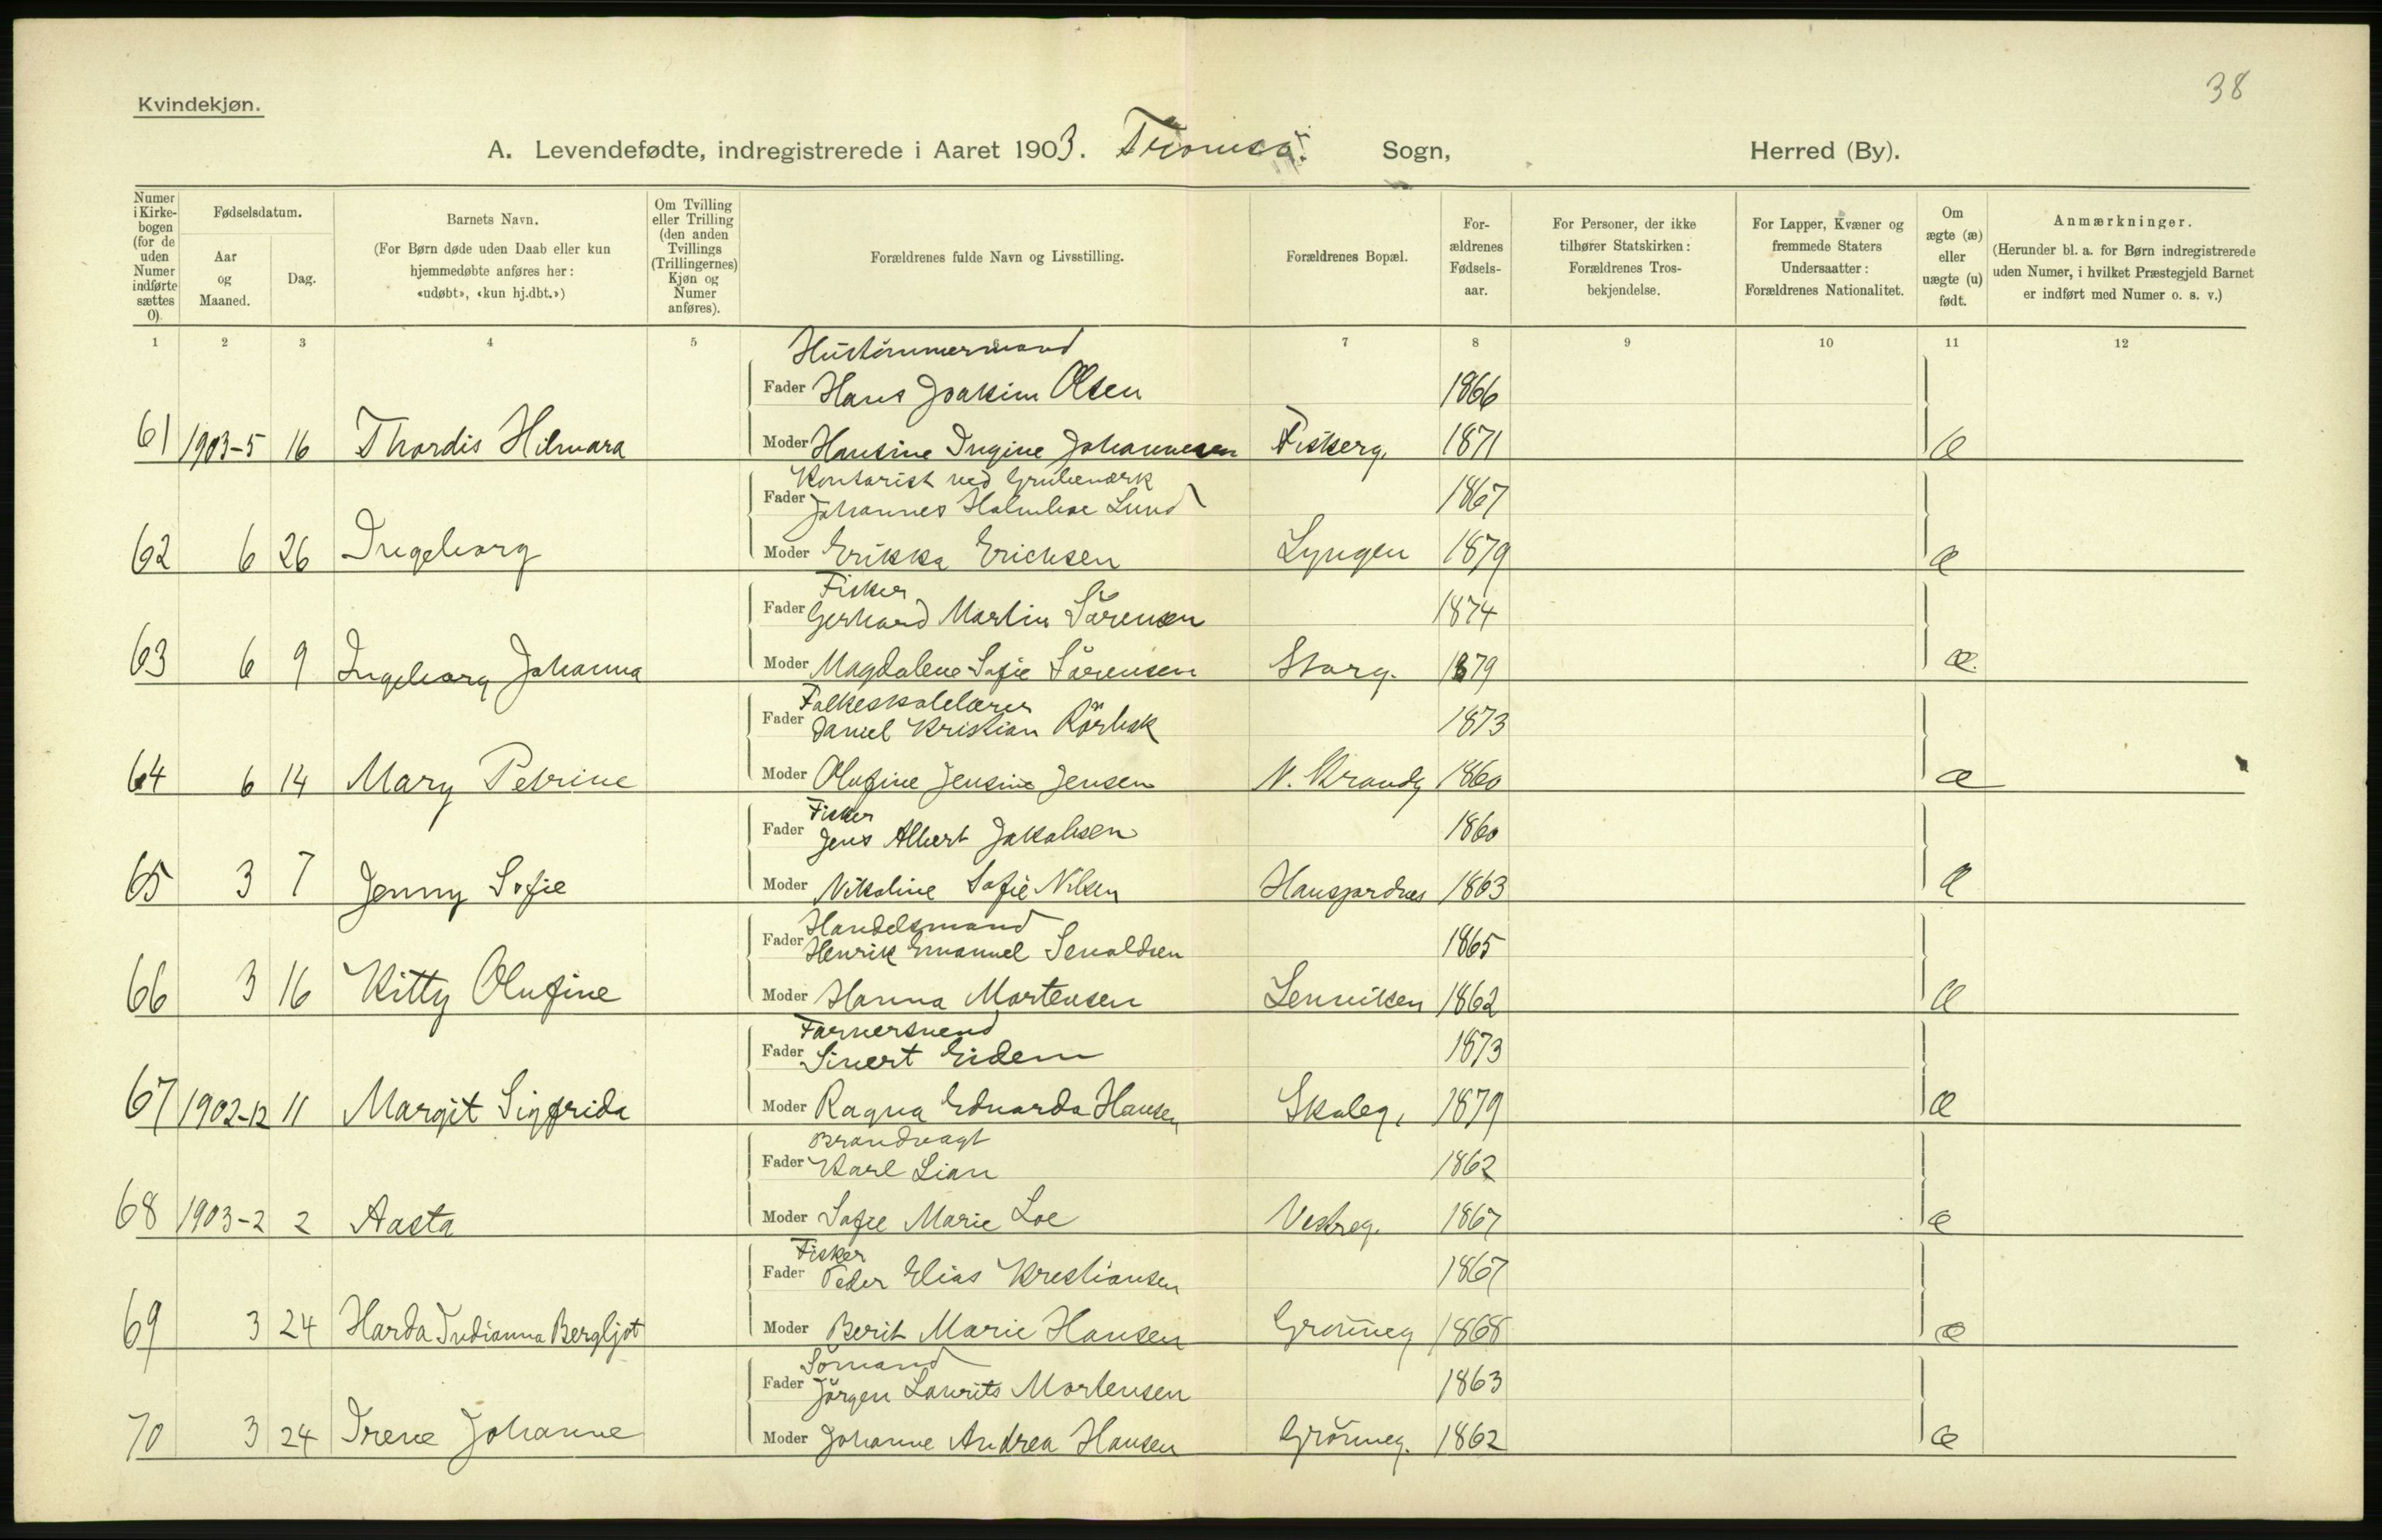 38
Kvindekjøn.
A. Levendefødte, indregistrerede i Aaret 1903. Tromsø. Sogn, Herred (By).
Numer i Kirkebogen (for de uden Numer indførte sættes 0).
Fødselsdatum.
Aar og Maaned.
Dag.
Barnets Navn.
(For Børn døde uden Daab eller kun hjemmedøbte anføres her: «udøbt», «kun hj.dbt.»)
Om Tvilling eller Trilling (den anden Tvillings (Trillingernes) Kjøn og Numer anføres).
Forældrenes fulde Navn og Livsstilling.
Forældrenes Bopæl.
Forældrenes Fødselsaar.
For Personer, der ikke tilhører Statskirken: Forældrenes Trosbekjendelse.
For Lapper, Kvæner og fremmede Staters Undersaatter: Forældrenes Nationalitet.
Om ægte (æ) eller uægte (u) født.
Anmærkninger.
(Herunder bl. a. for Børn indregistrerede uden Numer, i hvilket Præstegjeld Barnet er indført med Numer o. s. v.)
1 2 3 4 5 7 8 9 10 11 12
Hustømmermand
Fader Hans Joakim Olsen 1866
61 1903-5 16 Thordis Hilmara Moder Hansine Ingine Johannesen Fiskerg. 1871 æ
Kontorist ved Grubeværk
Fader Johannes Holmboe Lund 1867
62 6 26 Ingeborg Moder Erikka Erichsen Lyngen 1879 æ
Fisker
Fader Gerhard Martin Sørensen 1874
63 6 9 Ingeborg Johanna Moder Magdalene Sofie Sørensen Storg. 1879 æ.
Folkeskolelærer
Fader Daniel Kristian Rørbak 1873
64 6 14 Mary Petrine Moder Olufine Jensine Jensen N. Strandg 1860 æ
Fisker
Fader Jens Albert Jakobsen 1860
65 3 7 Jenny Sofie Moder Nikoline Sofie Nilsen Hansjordnes 1863 æ
Handelsmand
Fader Henrik Emanuel Senoldsen 1865
66 3 16 Kitty Olufine Moder Hanna Mortensen Lenviken 1862 æ
Farversvend
Fader Sivert Eidem 1873
67 1902-12 11 Margit Sigfrida Moder Ragna Edvarda Hansen Skoleg. 1879 æ
Brandvagt
Fader Karl Lian 1862
68 1903-2 2 Aasta Moder Sofie Marie Loe Vestreg. 1867 æ
Fisker
Fader Peder Elias Krestiansen 1867
69 3 24 Harda Indianna Bergljot Moder Berit Marie Hansen Grønneg 1868 æ
Sømand
Fader Jørgen Laurits Mortensen 1863
70 3 24 Irene Johanne Moder Johanne Andrea Hansen Grønneg. 1862 æ